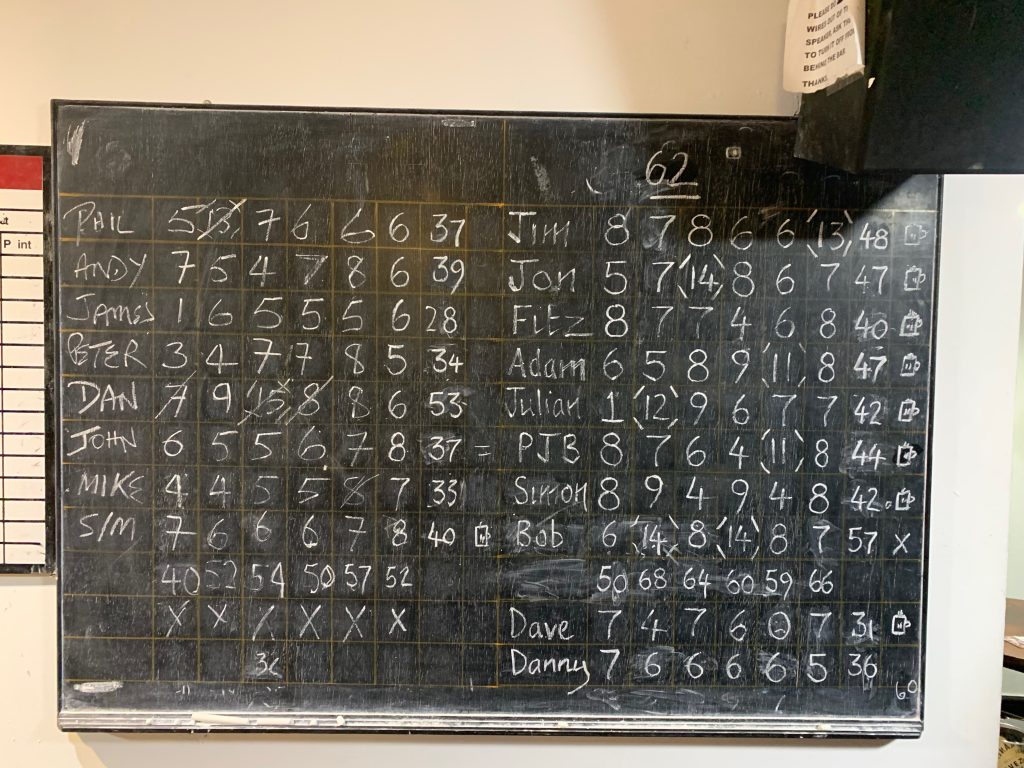 PLEASE
WIRES OUT OF T
SPEAKER, ASK TH
TO TURN IT OFF FROM
BEHIND THE BAR
THANKS.
P int
62
PHIL 5 13 7 6 6 6 37
Jim 8 7 8 6 6 (13) 48
ANDY 7 5 4 7 8 6 39
Jon 5 7 (14) 8 6 7 47
JAMES 1 6 5 5 5 6 28
FItz 8 7 7 4 6 8 40
PETER 3 4 7 7 8 5 34
Adam 6 5 8 9 (11) 8 47
DAN 7 9 15 8 8 6 53
Julian 1 (12) 9 6 7 7 42
JOHN 6 5 5 6 7 8 37 =
PJB 8 7 6 4 (11) 8 44
MIKE 4 4 5 5 8 7 33
Simon 8 9 4 9 4 8 42
S/M 7 6 6 6 7 8 40
Bob 6 (14) 8 (14) 8 7 57 X
40 52 54 50 57 52
50 68 64 60 59 66
X X X X X X
Dave 7 4 7 6 0 7 31
Danny 7 6 6 6 6 5 36
60